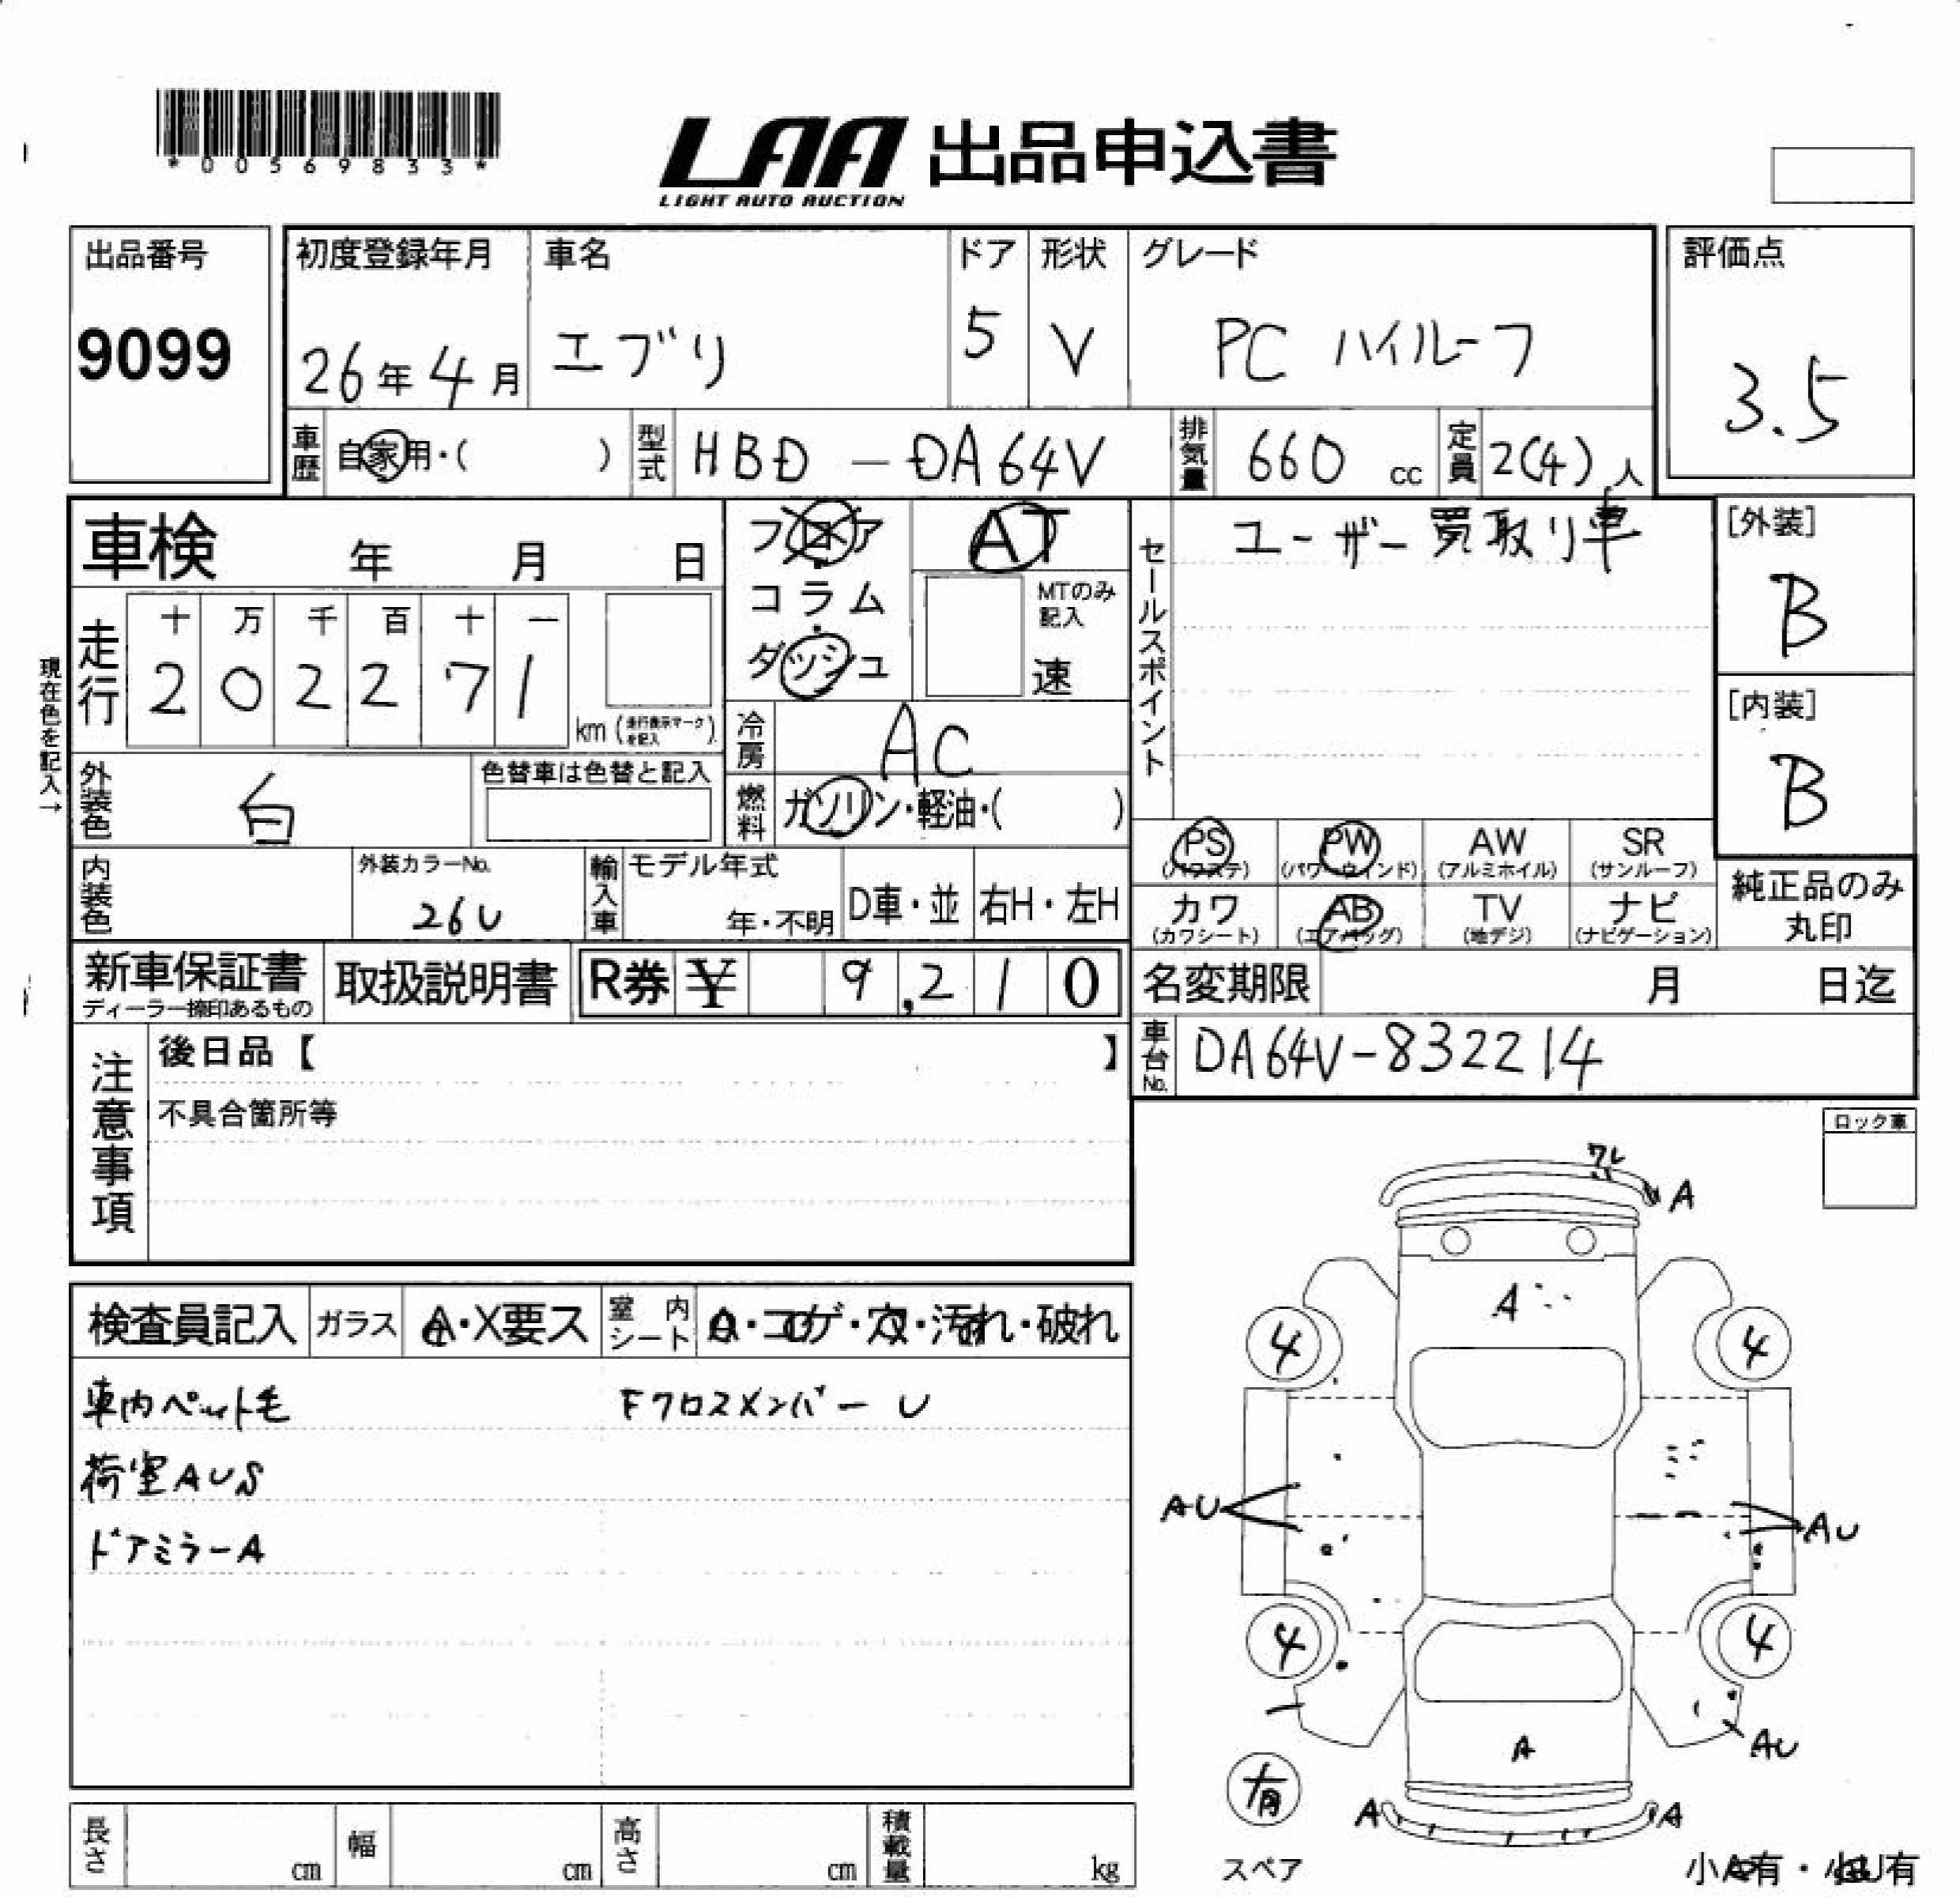 *00569833*
LAA 出品申込書
LIGHT AUTO AUCTION
出品番号
9099
初度登録年月
26年4月
車名
エブリ
ドア
5
形状
V
グレード
PC ハイルーフ
評価点
3.5
車歴 自家用・( )
型式 HBD-DA64V
排気量 660 cc
定員 2(4)人
車検 年 月 日
フロア
コラム
ダッシュ
AT
MTのみ記入
速
セールスポイント
ユーザー買取り車
[外装]
B
[内装]
B
現在色を記入→
走行
十 万 千 百 十 一
2 0 2 2 7 1
km (走行表示マークを記入)
冷房 AC
燃料 ガソリン・軽油・( )
外装色 白
色替車は色替と記入
内装色
外装カラーNo.
26U
輸入車
モデル年式
年・不明
D車・並
右H・左H
PS (パワステ)
PW (パワーウインド)
AW (アルミホイル)
SR (サンルーフ)
カワ (カワシート)
AB (エアバッグ)
TV (地デジ)
ナビ (ナビゲーション)
純正品のみ丸印
新車保証書
ディーラー捺印あるもの
取扱説明書
R券 ¥ 9,210
名変期限 月 日迄
車台No. DA64V-832214
注意事項
後日品【 】
不具合箇所等
ロック車
検査員記入
ガラス A・X要ス
室内シート
・コゲ・穴・汚れ・破れ
車内ペット毛
Fクロスメンバー U
荷室AUS
ドアミラーA
ワレ
A
A
4
4
AU
AU
4
4
AU
A
有
A
A
スペア
小A有・小U有
長さ cm
幅 cm
高さ cm
積載量 kg